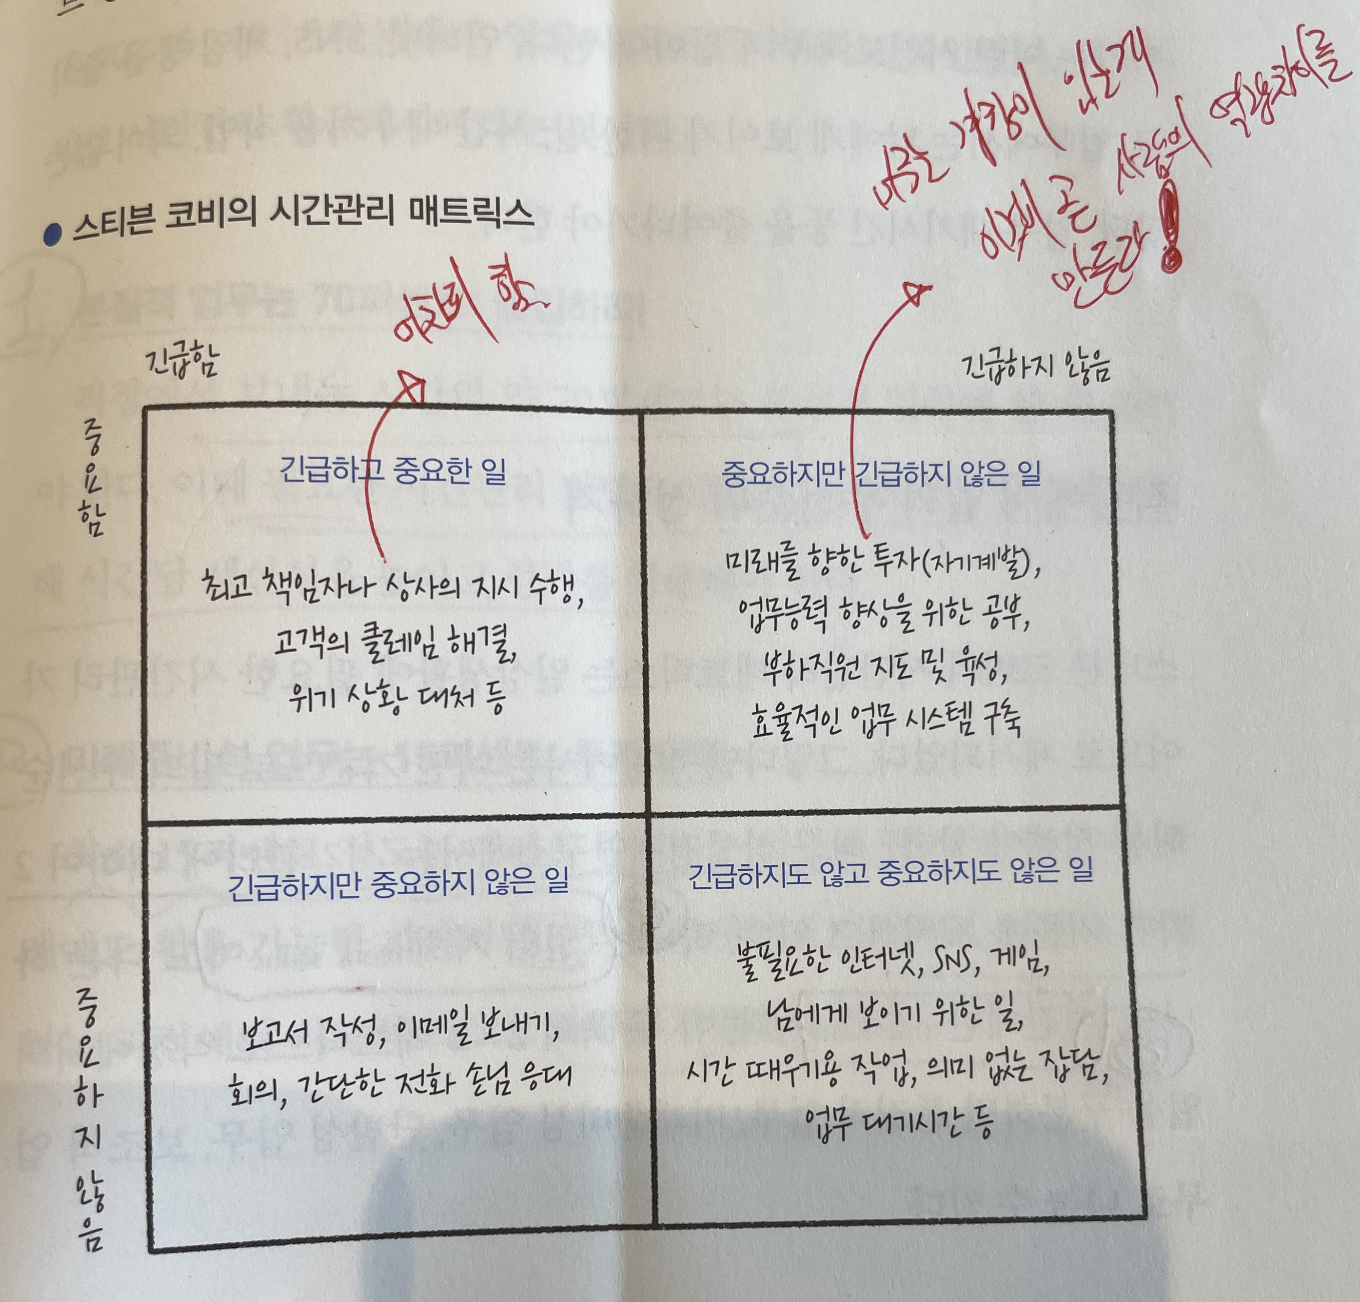 ● 스티븐 코비의 시간관리 매트릭스
미루는 경향이 있는게
이것이 곧 사람의 역량차이를
만든다!
어차피 함.
긴급함
긴급하지 않음
중요함
긴급하고 중요한 일
최고 책임자나 상사의 지시 수행,
고객의 클레임 해결,
위기 상황 대처 등
중요하지만 긴급하지 않은 일
미래를 향한 투자(자기계발),
업무능력 향상을 위한 공부,
부하직원 지도 및 육성,
효율적인 업무 시스템 구축
중요하지 않음
긴급하지만 중요하지 않은 일
보고서 작성, 이메일 보내기,
회의, 간단한 전화 손님 응대
긴급하지도 않고 중요하지도 않은 일
불필요한 인터넷, SNS, 게임,
남에게 보이기 위한 일,
시간 때우기용 작업, 의미 없는 잡담,
업무 대기시간 등